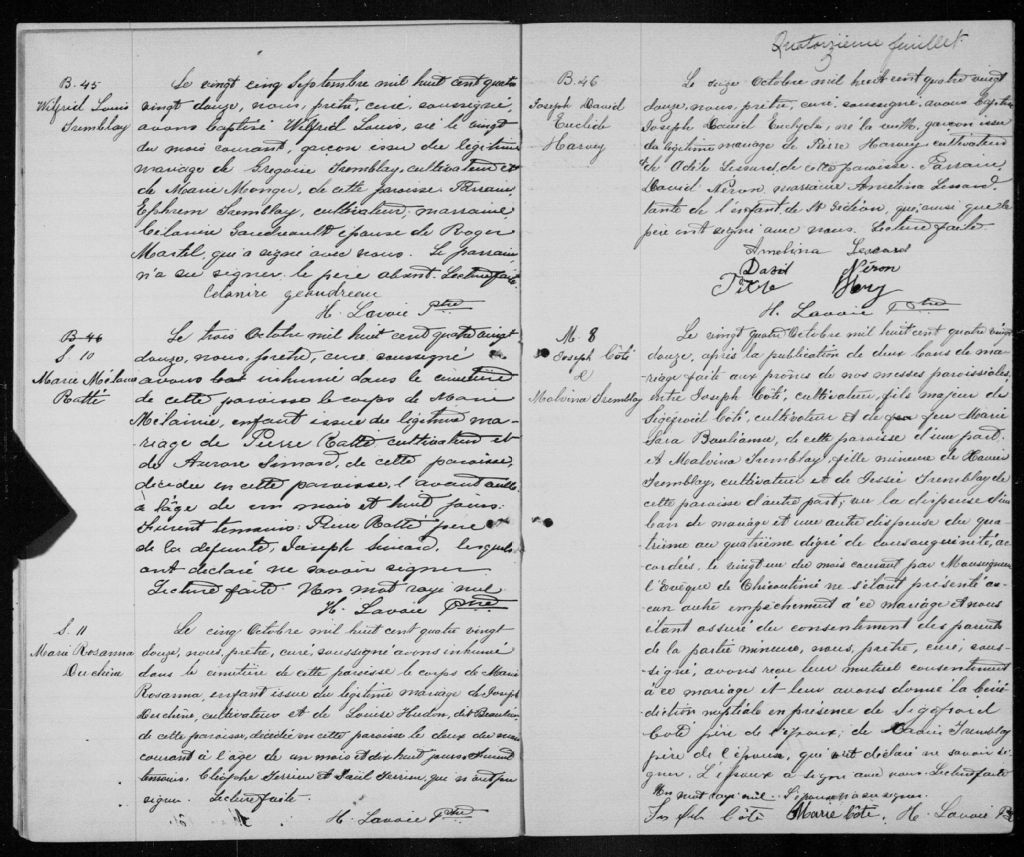 B. 45
Wilfrid Louis
Tremblay
Le vingt cinq Septembre mil huit cent quatre
vingt douze, nous, prêtre, curé, soussigné,
avons baptisé Wilfrid Louis, né le vingt
du mois courant, garçon issu du légitime
mariage de Grégoire Tremblay, cultivateur et
de Marie Monger, de cette paroisse. Parrain,
Ephrem Tremblay, cultivateur, marraine,
Célanire Gaudreault épouse de Roger
Martel, qui a signé avec nous. Le parrain
n'a su signer, le père absent. Lecture faite.
Celanire geaudreau
H. Lavoie Ptre
B. 46
S. 10
Marie Mélanie
Ratté
Le trois Octobre mil huit cent quatre vingt
douze, nous, prêtre, curé soussigné
avons inhumé dans le cimetière
de cette paroisse le corps de Marie
Mélainie, enfant issue du légitime ma-
riage de Pierre Ratté cultivateur et
de Aurore Simard, de cette paroisse,
décédée en cette paroisse, l'avant veille
à l'âge de un mois et huit jours.
Furent témoins: Pierre Ratté père
de la défunte, Joseph Simard, lesquels
ont déclaré ne savoir signer
Lecture faite. Un mot rayé nul
H. Lavoie Ptre
S. 11
Marie Rosanna
Duchêne
Le cinq Octobre mil huit cent quatre vingt
douze, nous, prêtre, curé, soussigné avons inhumé
dans le cimetière de cette paroisse le corps de Marie
Rosanna, enfant issue du légitime mariage de Joseph
Duchêne, cultivateur et de Louise Hudon, dit Beaulieu
de cette paroisse, décédée en cette paroisse le deux du mois
courant à l'âge de un mois et dix huit jours. Furent
témoins. Cléophe Perrien et Saül Perrien, qui n'ont pu
signer. Lecture faite.
H. Lavoie Ptre
Quatorzième feuillet
B. 46
Joseph David
Euclide
Harvey
Le seize Octobre mil huit cent quatre vingt
douze, nous, prêtre, curé, soussigné, avons baptisé
Joseph David Euclyde, né la veille, garçon issu
du légitime mariage de Pierre Harvey cultivateur
et de Adèle Lessard, de cette paroisse. Parrain,
David Néron, marraine Amelina Lessard,
tante de l'enfant, de St Gédéon, qui, ainsi que le
père ont signé avec nous. Lecture faite.
Amelina Lessard
David Néron
Pitre Hervy
H. Lavoie Ptre
M. 8
Joseph Côté
&
Malvina Tremblay
Le vingt quatre Octobre mil huit cent quatre vingt
douze, après la publication de deux bans de ma-
riage faite aux prônes de nos messes paroissiales
entre Joseph Côté, cultivateur, fils majeur de
Sigefroid Côté, cultivateur et de feu Marie
Sara Bouliânne, de cette paroisse d'une part;
et Malvina Tremblay, fille mineure de Xavier
Tremblay, cultivateur et de Jessie Tremblay de
cette paroisse d'autre part; vu la dispense d'un
ban de mariage et une autre dispense du qua-
trième au quatrième dégré de consanguinité, ac-
cordées, le vingt un du mois courant par Monseigneur
l'Evêque de Chicoutimi ne s'étant présenté au-
cun autre empêchement à ce mariage et nous
étant assuré du consentement des parents
de la partie mineure, nous, prêtre, curé, sous-
signé, avons reçu leur mutuel consentement
à ce mariage et leur avons donné la béné-
diction nuptiale en présence de Sigefroid
Côté père de l'époux; de Xavier Tremblay
père de l'épouse, qui ont déclaré ne savoir si-
gner. L'époux a signé avec nous. Lecture faite
Un mot rayé nul. L'épouse n'a su signer.
Joseph Côté Marie Côté. H. Lavoie Ptre